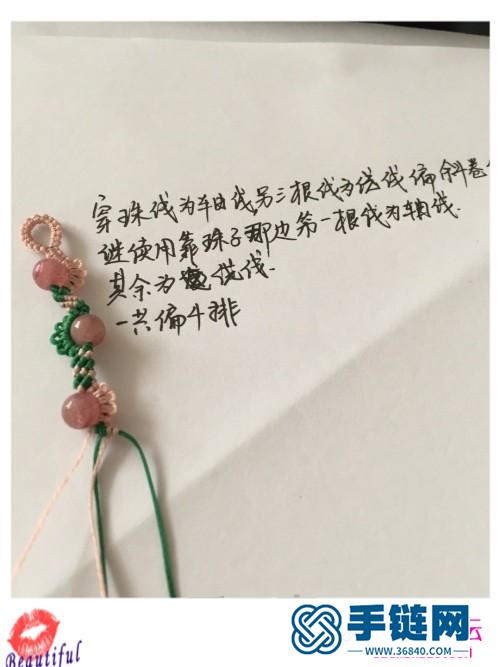 穿珠线为轴线,另三根线为绕线偏斜卷
继使用靠珠子那边第一根线为轴线.
其余为绕线.
一共偏4排
Beautiful
手链网
www.36840.com
坛